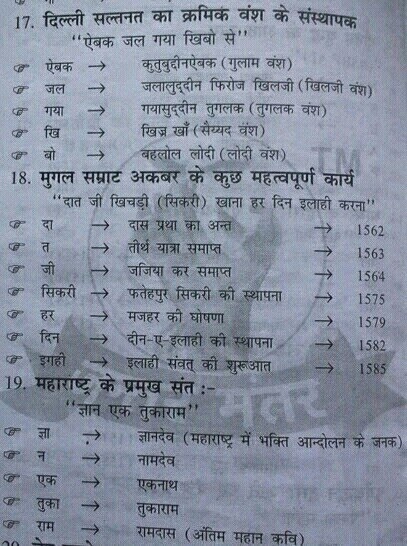 17. दिल्ली सल्तनत का क्रमिक वंश के संस्थापक
"ऐबक जल गया खिबो से"
☞ ऐबक → कुतुबुदीनऐबक (गुलाम वंश)
☞ जल → जलालुद्दीन फिरोज खिलजी (खिलजी वंश)
☞ गया → गयासुद्दीन तुगलक (तुगलक वंश)
☞ खि → खिज्र खाँ (सैय्यद वंश)
☞ बो → बहलोल लोदी (लोदी वंश)
TM
18. मुगल सम्राट अकबर के कुछ महत्वपूर्ण कार्य
"दात जी खिचड़ी (सिकरी) खाना हर दिन इलाही करना"
☞ दा → दास प्रथा का अन्त → 1562
☞ त → तीर्थ यात्रा समाप्त → 1563
☞ जी → जजिया कर समाप्त → 1564
☞ सिकरी → फतेहपुर सिकरी की स्थापना → 1575
☞ हर → मजहर की घोषणा → 1579
☞ दिन → दीन-ए-इलाही की स्थापना → 1582
☞ इगही → इलाही संवत् की शुरूआत → 1585
19. महाराष्ट्र के प्रमुख संत :-
"ज्ञान एक तुकाराम"
☞ ज्ञा → ज्ञानदेव (महाराष्ट्र में भक्ति आन्दोलन के जनक)
☞ न → नामदेव
☞ एक → एकनाथ
☞ तुका → तुकाराम
☞ राम → रामदास (अंतिम महान कवि)